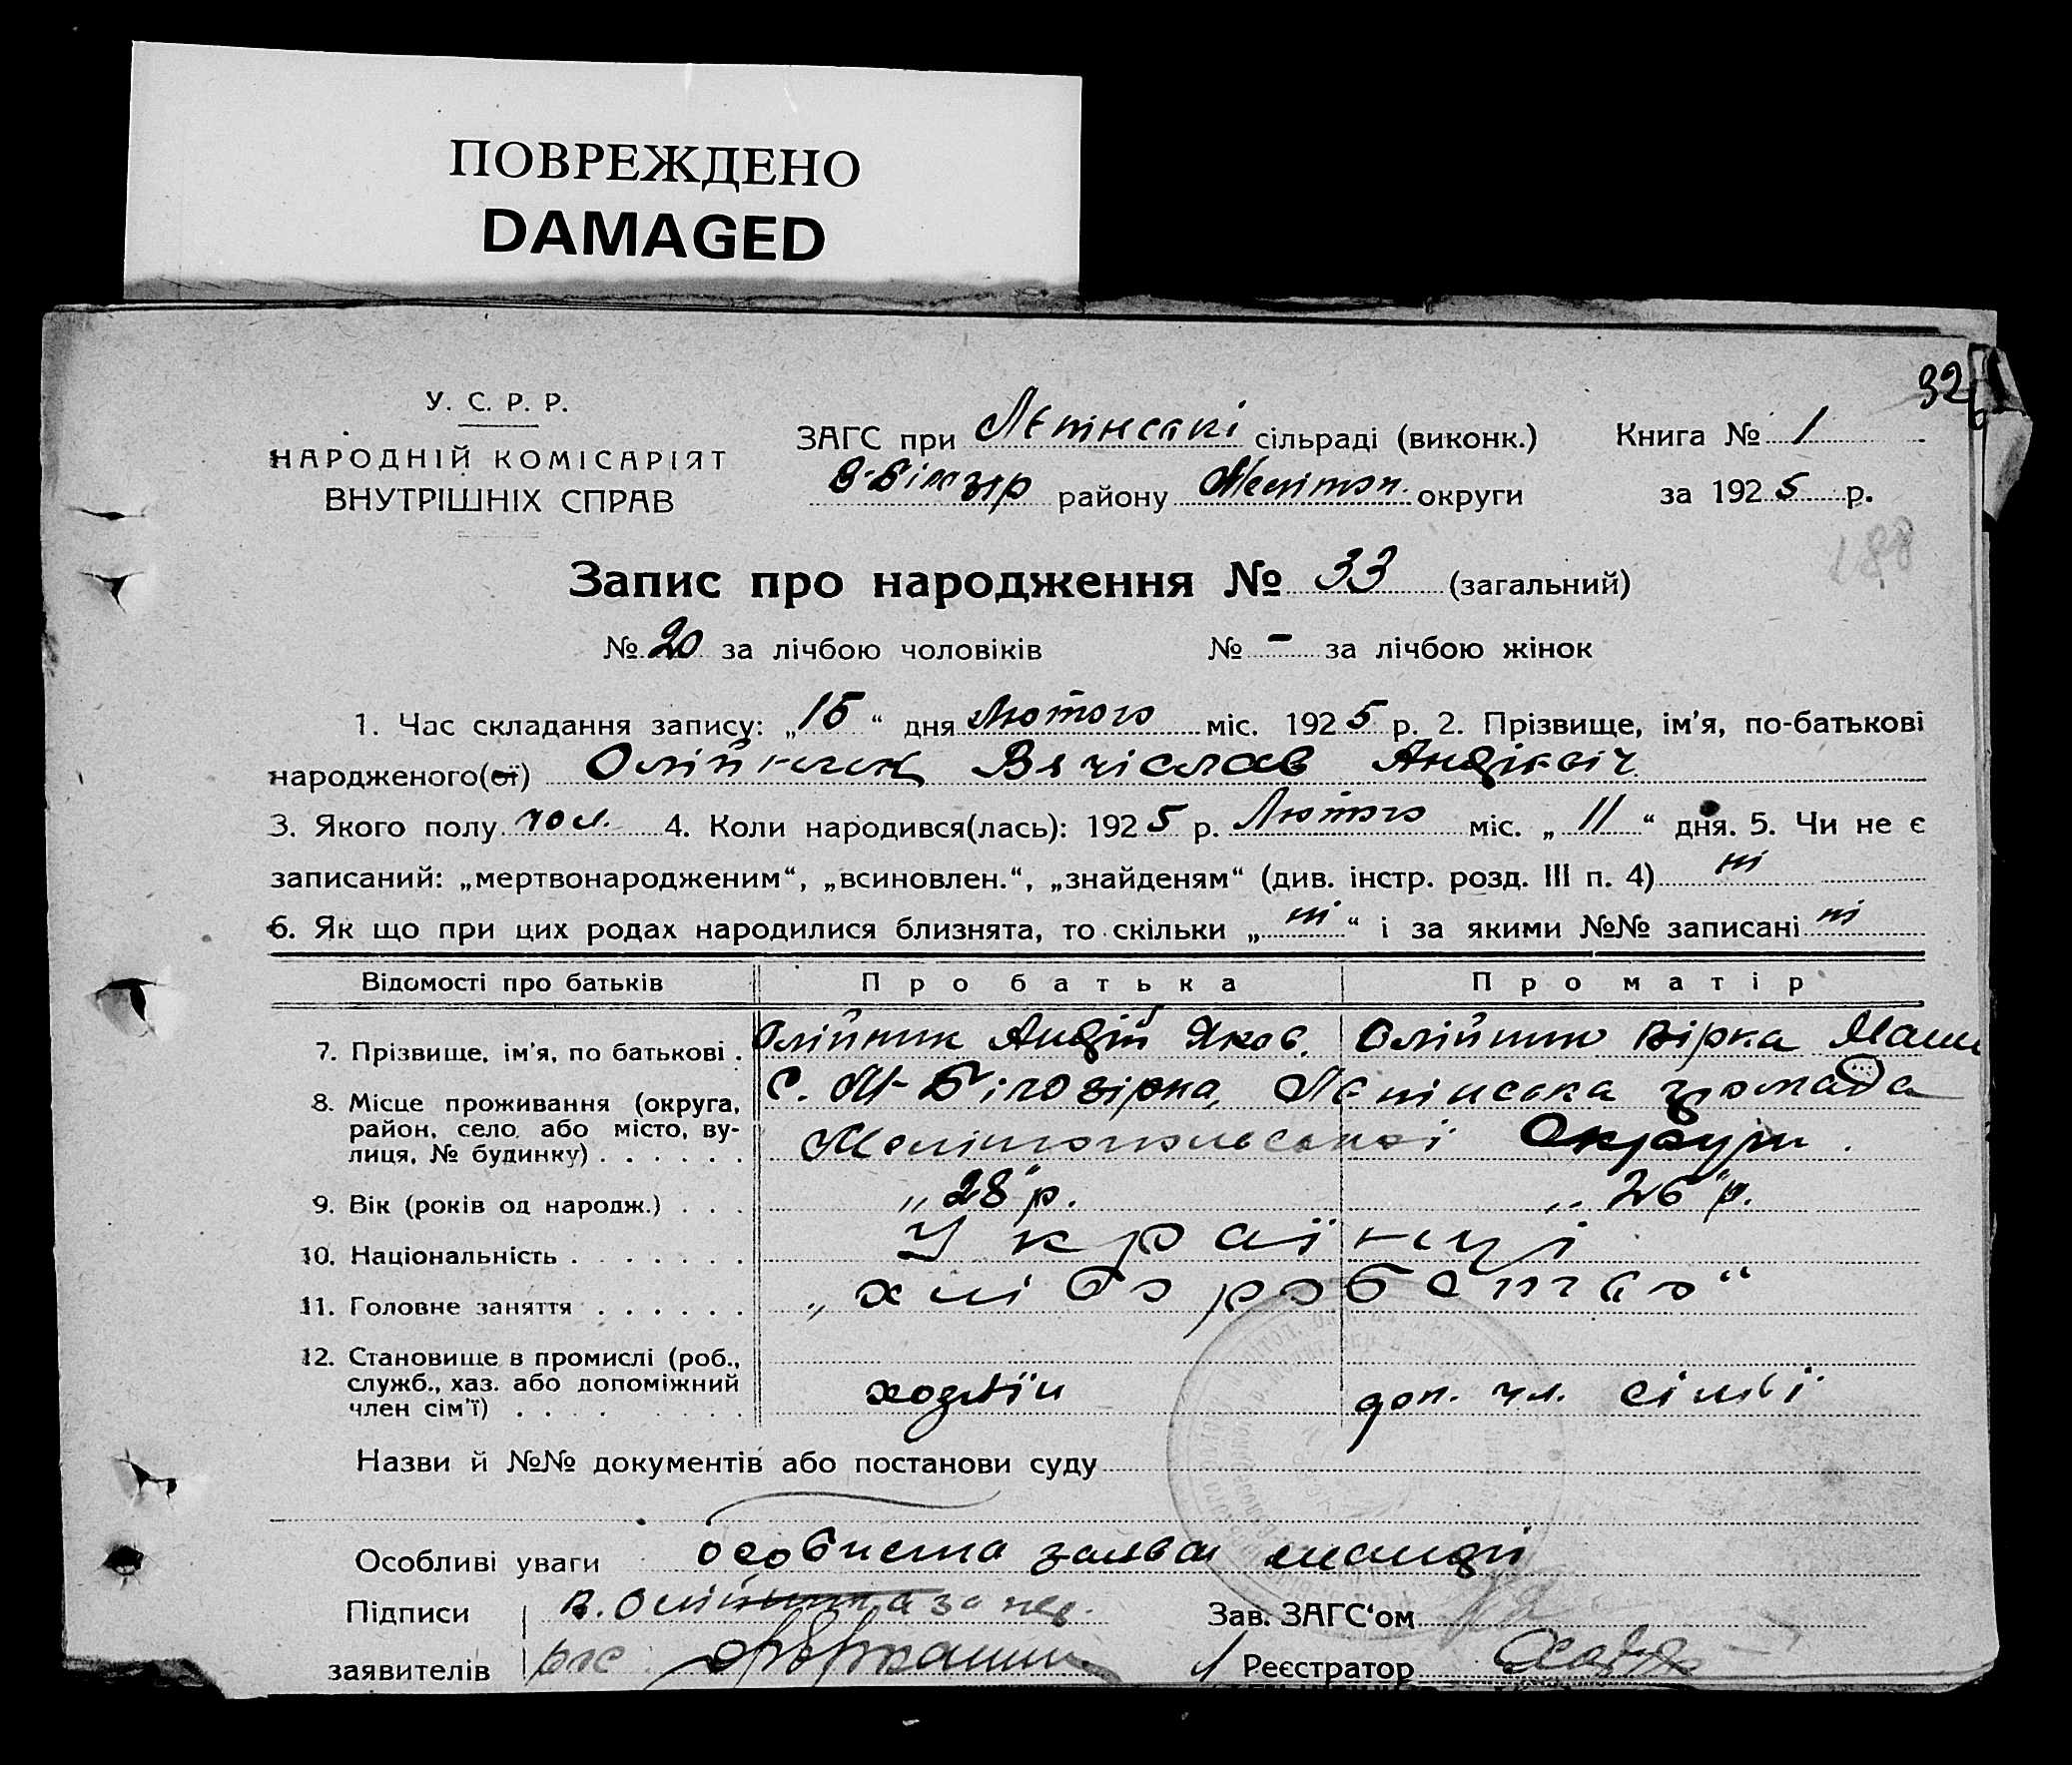 ПОВРЕЖДЕНО
DAMAGED
32
У. С. Р. Р.
НАРОДНІЙ КОМІСАРІЯТ
ВНУТРІШНІХ СПРАВ
ЗАГС при сільраді (виконк.)
району Мелітоп. округи
Книга № 1
за 1925 р.
188
Запис про народження № 33 (загальний)
№ 20 за лічбою чоловіків № – за лічбою жінок
1. Час складання запису: „15“ дня Лютого міс. 1925 р. 2. Прізвище, ім'я, по-батькові
народженого(ої) Олійник Вячіслав
3. Якого полу чол. 4. Коли народився(лась): 1925 р. Лютого міс. „11“ дня. 5. Чи не є
записаний: „мертвонародженим“, „всиновлен.“, „знайденям“ (див. інстр. розд. III п. 4) ні
6. Як що при цих родах народилися близнята, то скільки „ні“ і за якими №№ записані ні
Відомості про батьків Про батька Про матір
7. Прізвище, ім'я, по батькові . Олійник Андрій Яков. Олійник Вірка
8. Місце проживання (округа, район, село або місто, вулиця, № будинку) . . . . . . С. М-Білозірка, громада
Мелітопольської Округи.
9. Вік (років од народж.) . . . „28“ р. „26“ р.
10. Національність . . . . . . . Українці
11. Головне заняття . . . . . . „хліборобство“
12. Становище в промислі (роб., служб., хаз. або допоміжний член сім'ї) . . . . хозяїн доп. чл. сімьї
Назви й №№ документів або постанови суду
Особливі уваги особиста заява
Підписи
заявителів
Зав. ЗАГС'ом
Реєстратор